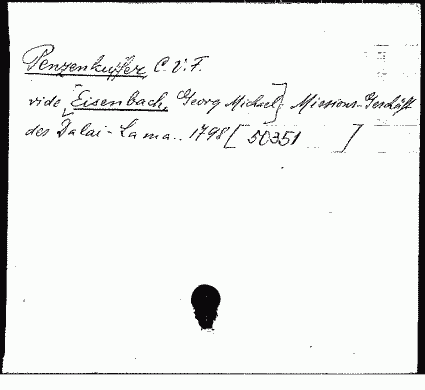 Penzenkuffer, C. V. F.
vide [Eisenbach, Georg Michael], Missions-Geschäft
des Dalai-Lama.. 1798 [ 50351 ]